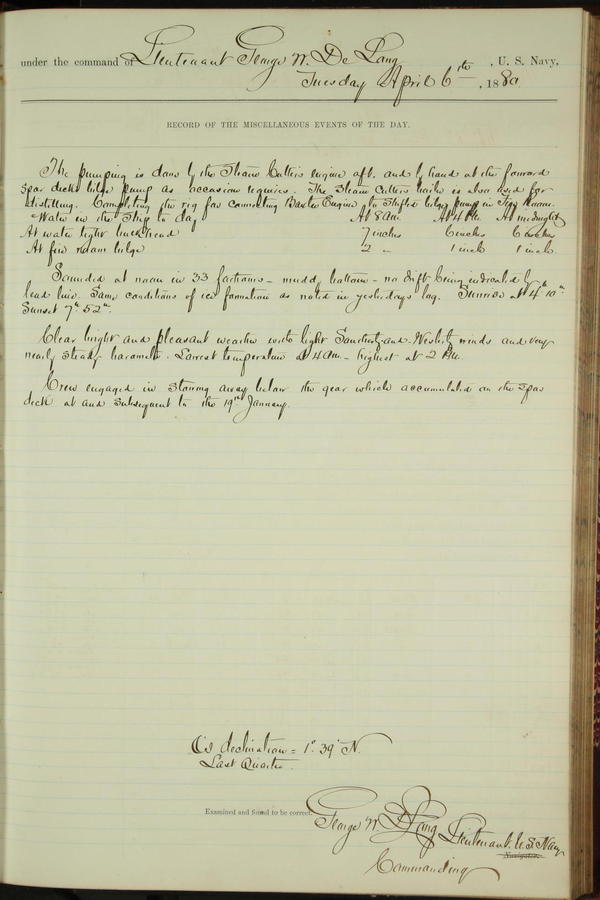 under the command of Lieutenant George W. De Long, U. S. Navy,
Tuesday April 6th, 1880
RECORD OF THE MISCELLANEOUS EVENTS OF THE DAY.
The pumping is done by the Steam Cutters engine aft. and by hand at the forward
spar deck bilge pump as occasion requires. The Steam Cutters boiler is also used for
distilling. Completing the rig for connecting Baxter Engine to Shifted bilge pump in Fire Room.
Water in the Ship to day At 8 Am. At 4 Pm. At midnight
At water tight bulkhead 7 inches 6 inches 6 inches
At fire room bilge 2 " 1 inch 1 inch.
Sounded at noon in 33 fathoms - muddy bottom - no drift being indicated by
lead line. Same conditions of ice formation as noted in yesterdays log. Sunrise at 4h 10m
Sunset 7h 52m.
Clear bright and pleasant weather with light Southerly and Westerly winds and very
nearly steady barometer. Lowest temperature at 4 am - highest at 2 Pm.
Crew engaged in stowing away below the gear which accumulated on the spar
deck at and subsequent to the 19th January.
☾'s declination = 1° 39' N.
Last Quarter.
Examined and found to be correct.
George W. De Long Lieutenant U.S. Navy
Navigator.
Commanding